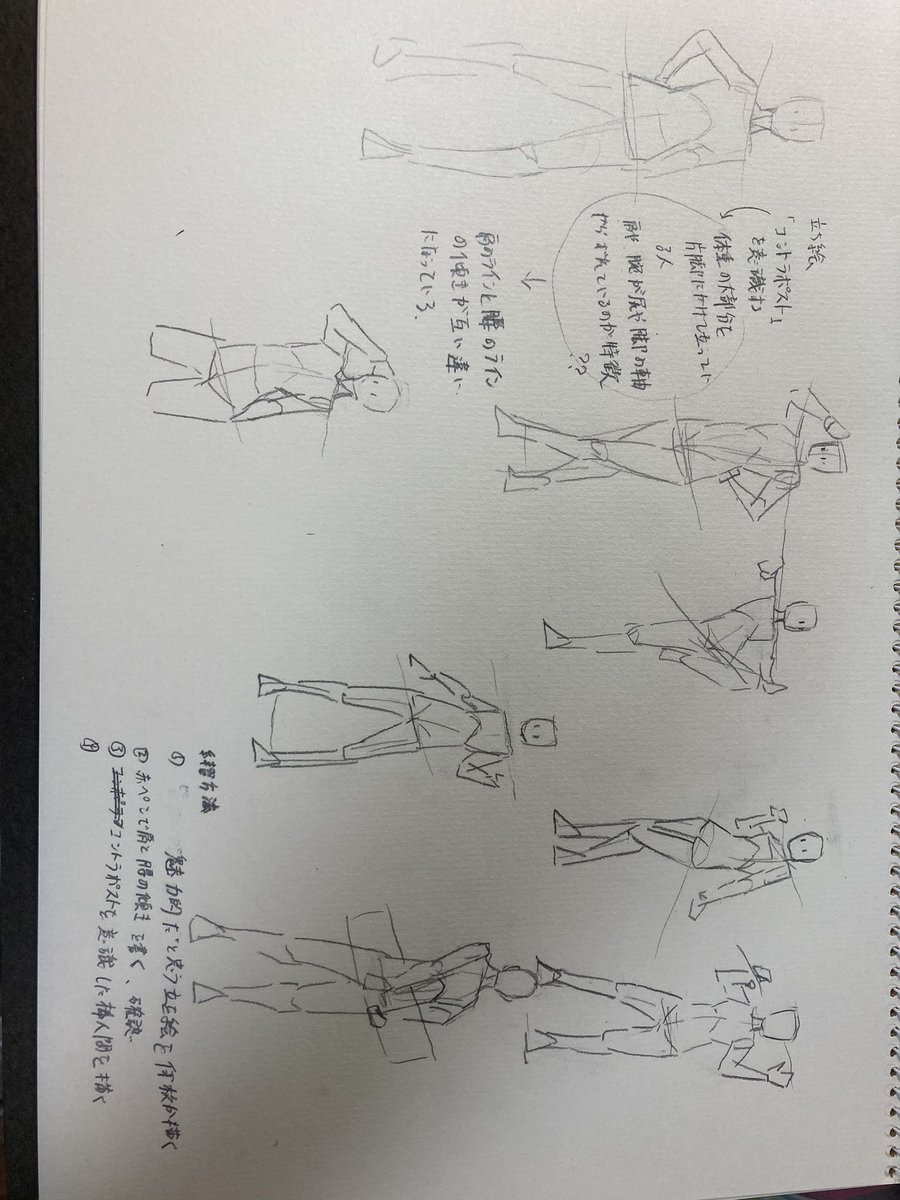 立ち絵
「コントラポスト」
を意識する
体重の大部分を
片脚にかけて立ってい
る人
肩や腕が尻や脚の軸
からずれているのが特徴
??
↓
肩のラインと腰のライン
の傾きが互い違い
になっている。
練習方法
① 魅力的だと思う立ち絵を何枚か描く
② 赤ペンで肩と腰の傾きを書く、確認
③ コントラポストを意識した棒人間を描く
④